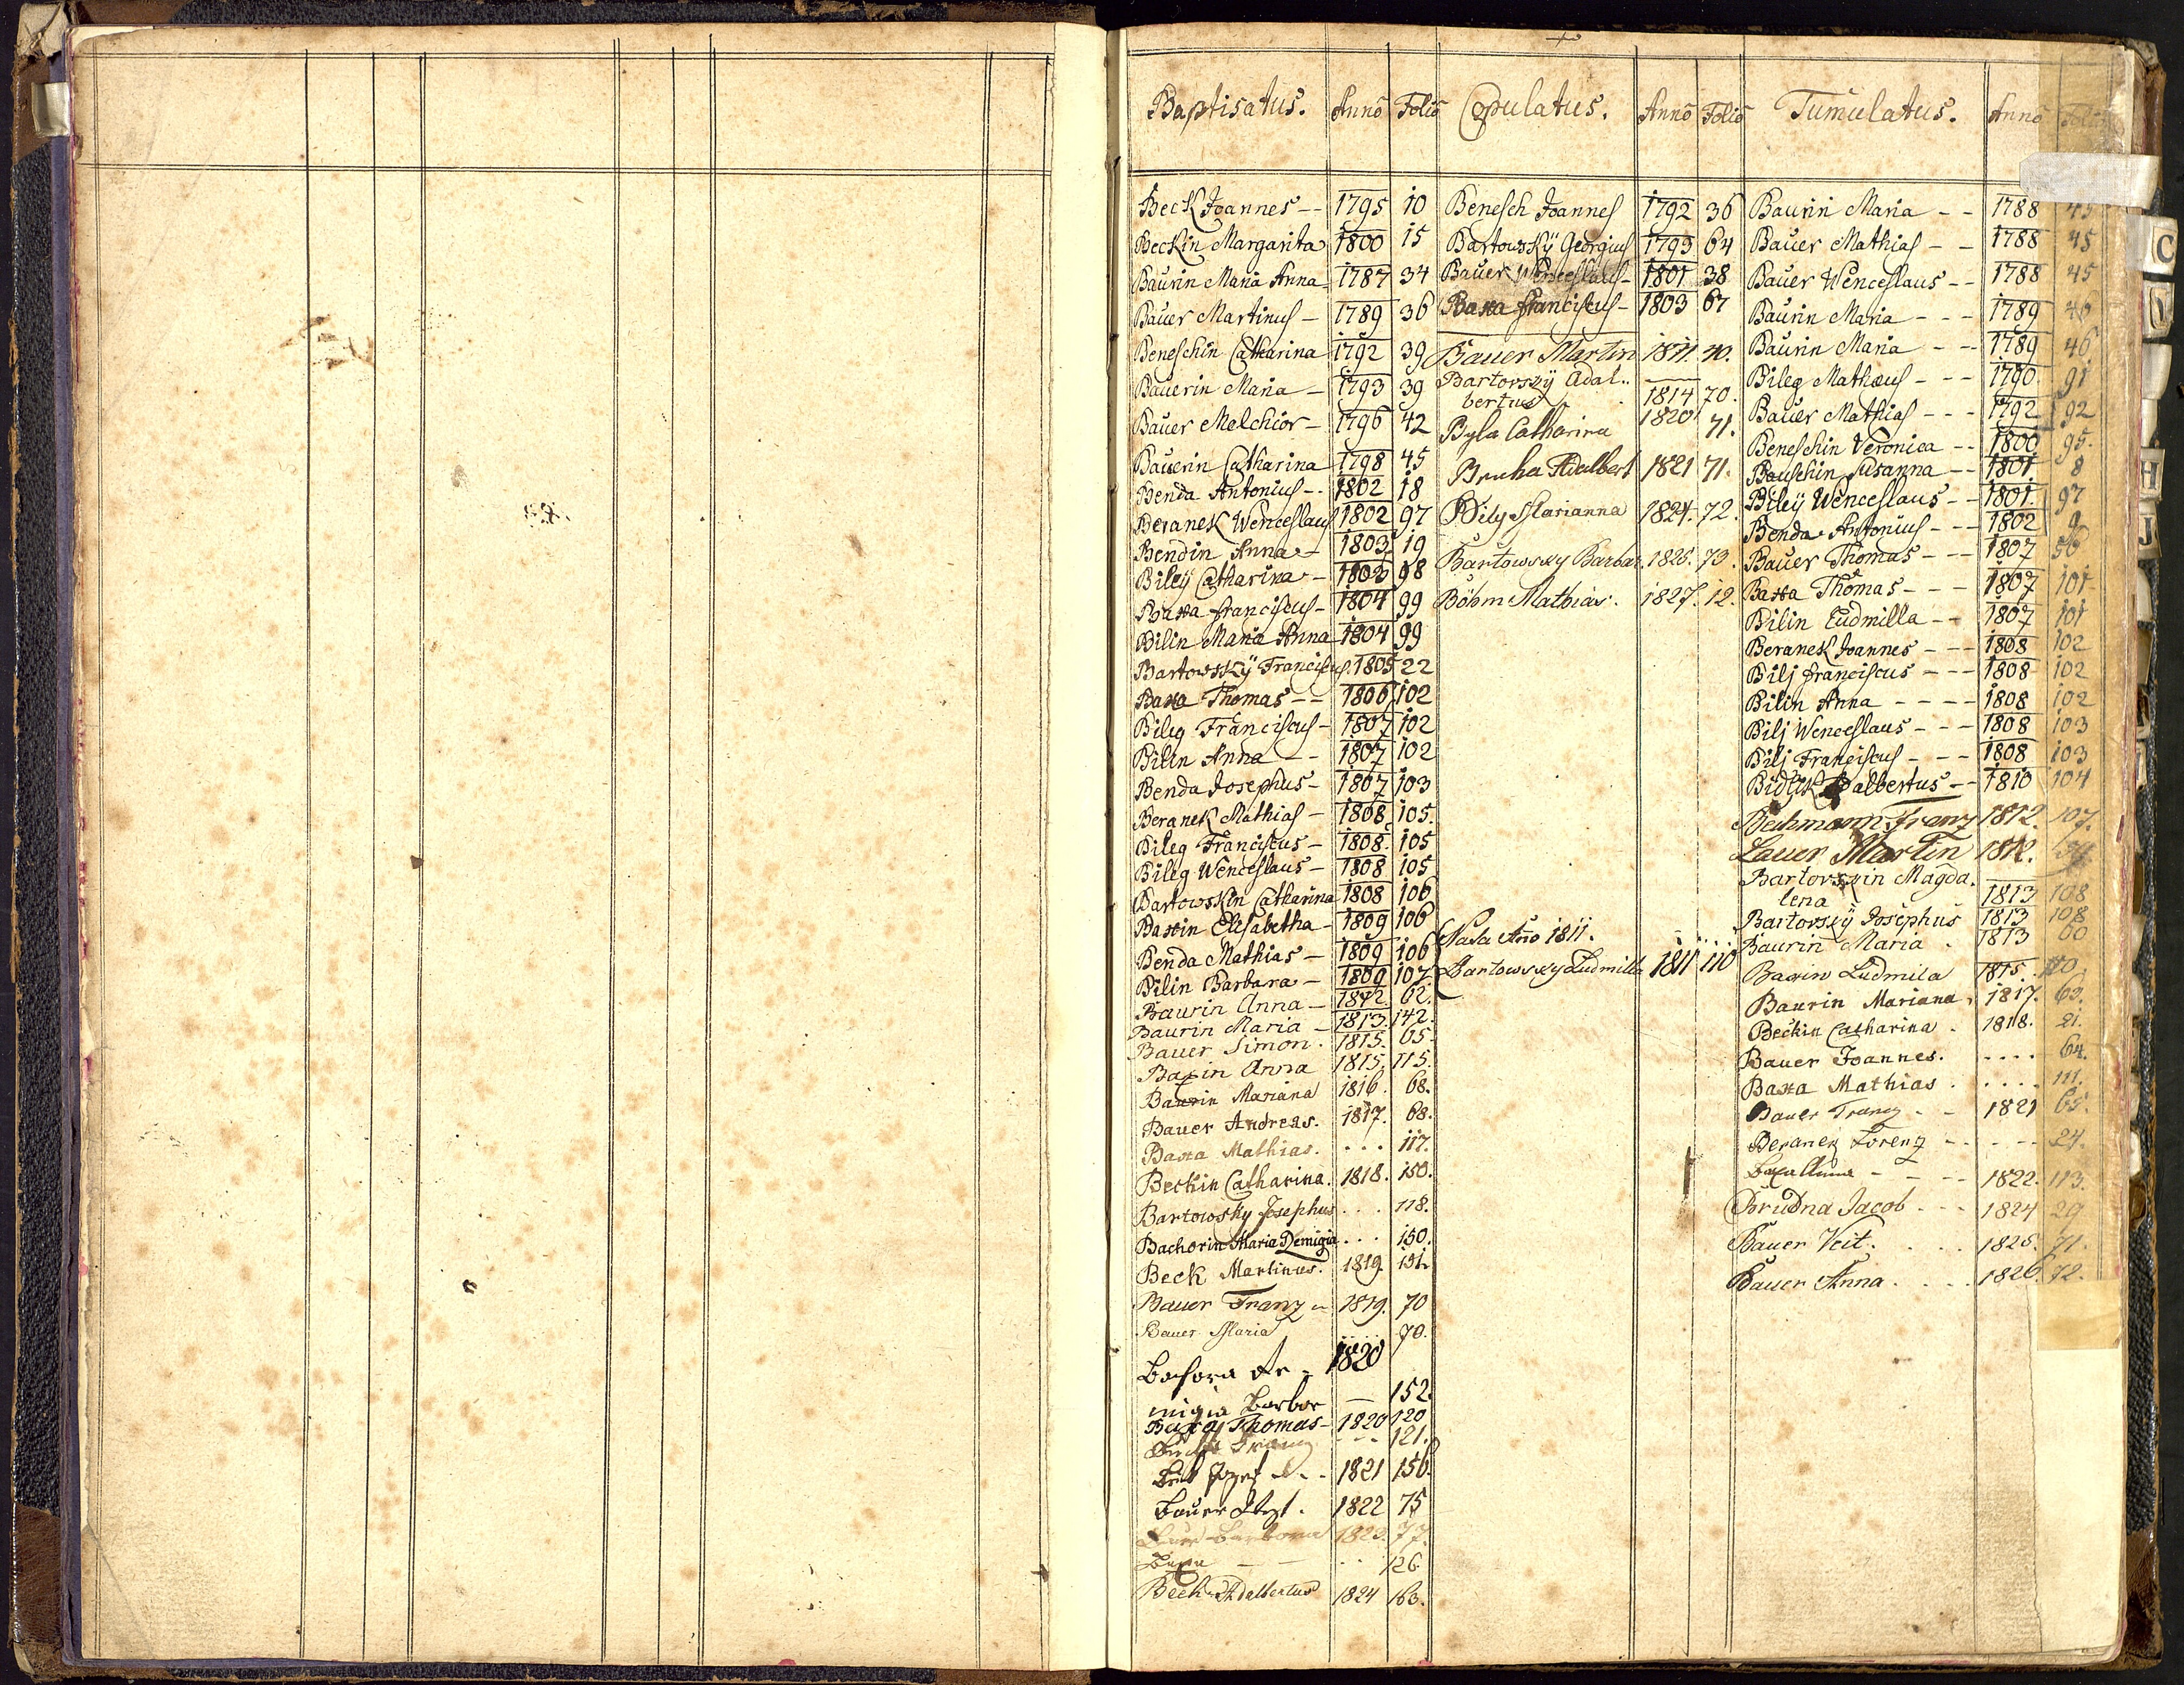 Baptisatus. Anno Folio Copulatus. Anno Folio Tumulatus. Anno Folio
Beck Joannes -- 1795 10
Beckin Margarita 1800 15
Baurin Maria Anna 1787 34
Bauer Martinus - 1789 36
Beneschin Catharina 1792 39
Bauerin Maria - 1793 39
Bauer Melchior - 1796 42
Bauerin Catharina 1798 45
Benda Antonius -- 1802 18
Beranek Wenceslaus 1802 97
Bendin Anna - 1803 19
Bileÿ Catharina - 1803 98
Baxa franciscus - 1804 99
Bilin Maria Anna 1804 99
Bartowskÿ Franciscus 1805 22
Baxa Thomas -- 1806 102
Bileg Franciscus - 1807 102
Bilin Anna -- 1807 102
Benda Josephus - 1807 103
Beranek Mathias - 1808 105.
Bileg Franciscus - 1808. 105
Bileg Wenceslaus - 1808 105
Bartowskin Catharina 1808 106
Baxin Elisabetha - 1809 106
Benda Mathias - 1809 106
Bilin Barbara - 1809 107
Baurin Anna - 1812. 62.
Baurin Maria - 1813. 142.
Bauer Simon. 1815. 65.
Baxin Anna 1815. 115.
Baurin Mariana 1816. 68.
Bauer Andreas. 1817. 68.
Baxa Mathias. ... 117.
Beckin Catharina. 1818. 150.
Bartowsky Josephus ... 118.
Bachorin Maria Remigia ... 150.
Beck Martinus. 1819. 151.
Bauer Franz 1819. 70
Bauer Maria 70.
Bachora Re- 1820
migia Barbor — 152.
Baxa Thomas - 1820 120
Franz --- 121.
Josef 1821 156.
Bauer 1822 75
Bauer Barbora 1823. 77.
Baxa — — .. 126
Beck Adalbertus 1824 163.
Benesch Joannes 1792 36
Bartowskÿ Georgius 1793 64
Bauer Wenceslaus - 1801 38
Baxa franciscus - 1803 67
Bauer Martin 1811. 40.
Bartorskÿ Adal..
bertus 1814 70.
Byla Catharina 1820 71.
Bruha Adalbert 1821 71.
Bily Marianna 1824. 72.
Bartowsky Barbar. 1825. 73.
Böhm Mathias. 1827. 12.
Nata Año 1811.
Bartowsky Ludmilla 1811 110
Baurin Maria -- 1788 45
Bauer Mathias -- 1788 45
Bauer Wenceslaus -- 1788 45
Baurin Maria --- 1789 46
Baurin Maria -- 1789 46
Bileg Mathæus --- 1790 91
Bauer Mathias --- 1792 92
Beneschin Veronica -- 1800 95.
Bauschin Susanna -- 1801 8
Bileÿ Wenceslaus -- 1801. 97
Benda Antonius --- 1802 9
Bauer Thomas --- 1807 56
Baxa Thomas --- 1807 101
Bilin Ludmilla -- 1807 101
Beranek Joannes --- 1808 102
Bilj franciscus --- 1808 102
Bilin Anna ---- 1808 102
Bilj Wenceslaus --- 1808 103
Bilj Franciscus --- 1808 103
albertus -- 1810 104
Bechmann Franz 1812. 107.
Bauer Martin 1812.
Bartorskin Magda.
lena 1813 108
Bartorskÿ Josephus 1813 108
Baurin Maria . 1813 60
Baxin Ludmila 1815. 110.
Baurin Mariana. 1817. 63.
Beckin Catharina . 1818. 21.
Bauer Joannes. .... 64.
Baxa Mathias . .... 111.
Bauer Franz . - 1821 65.
Beranek Lorenz -- --- 24.
Baxa Anna - -- 1822. 113.
Brudna Jacob . -- 1824 29
Bauer Veit. ... 1825. 71.
Bauer Anna. ... 1826. 72.
C
H
J